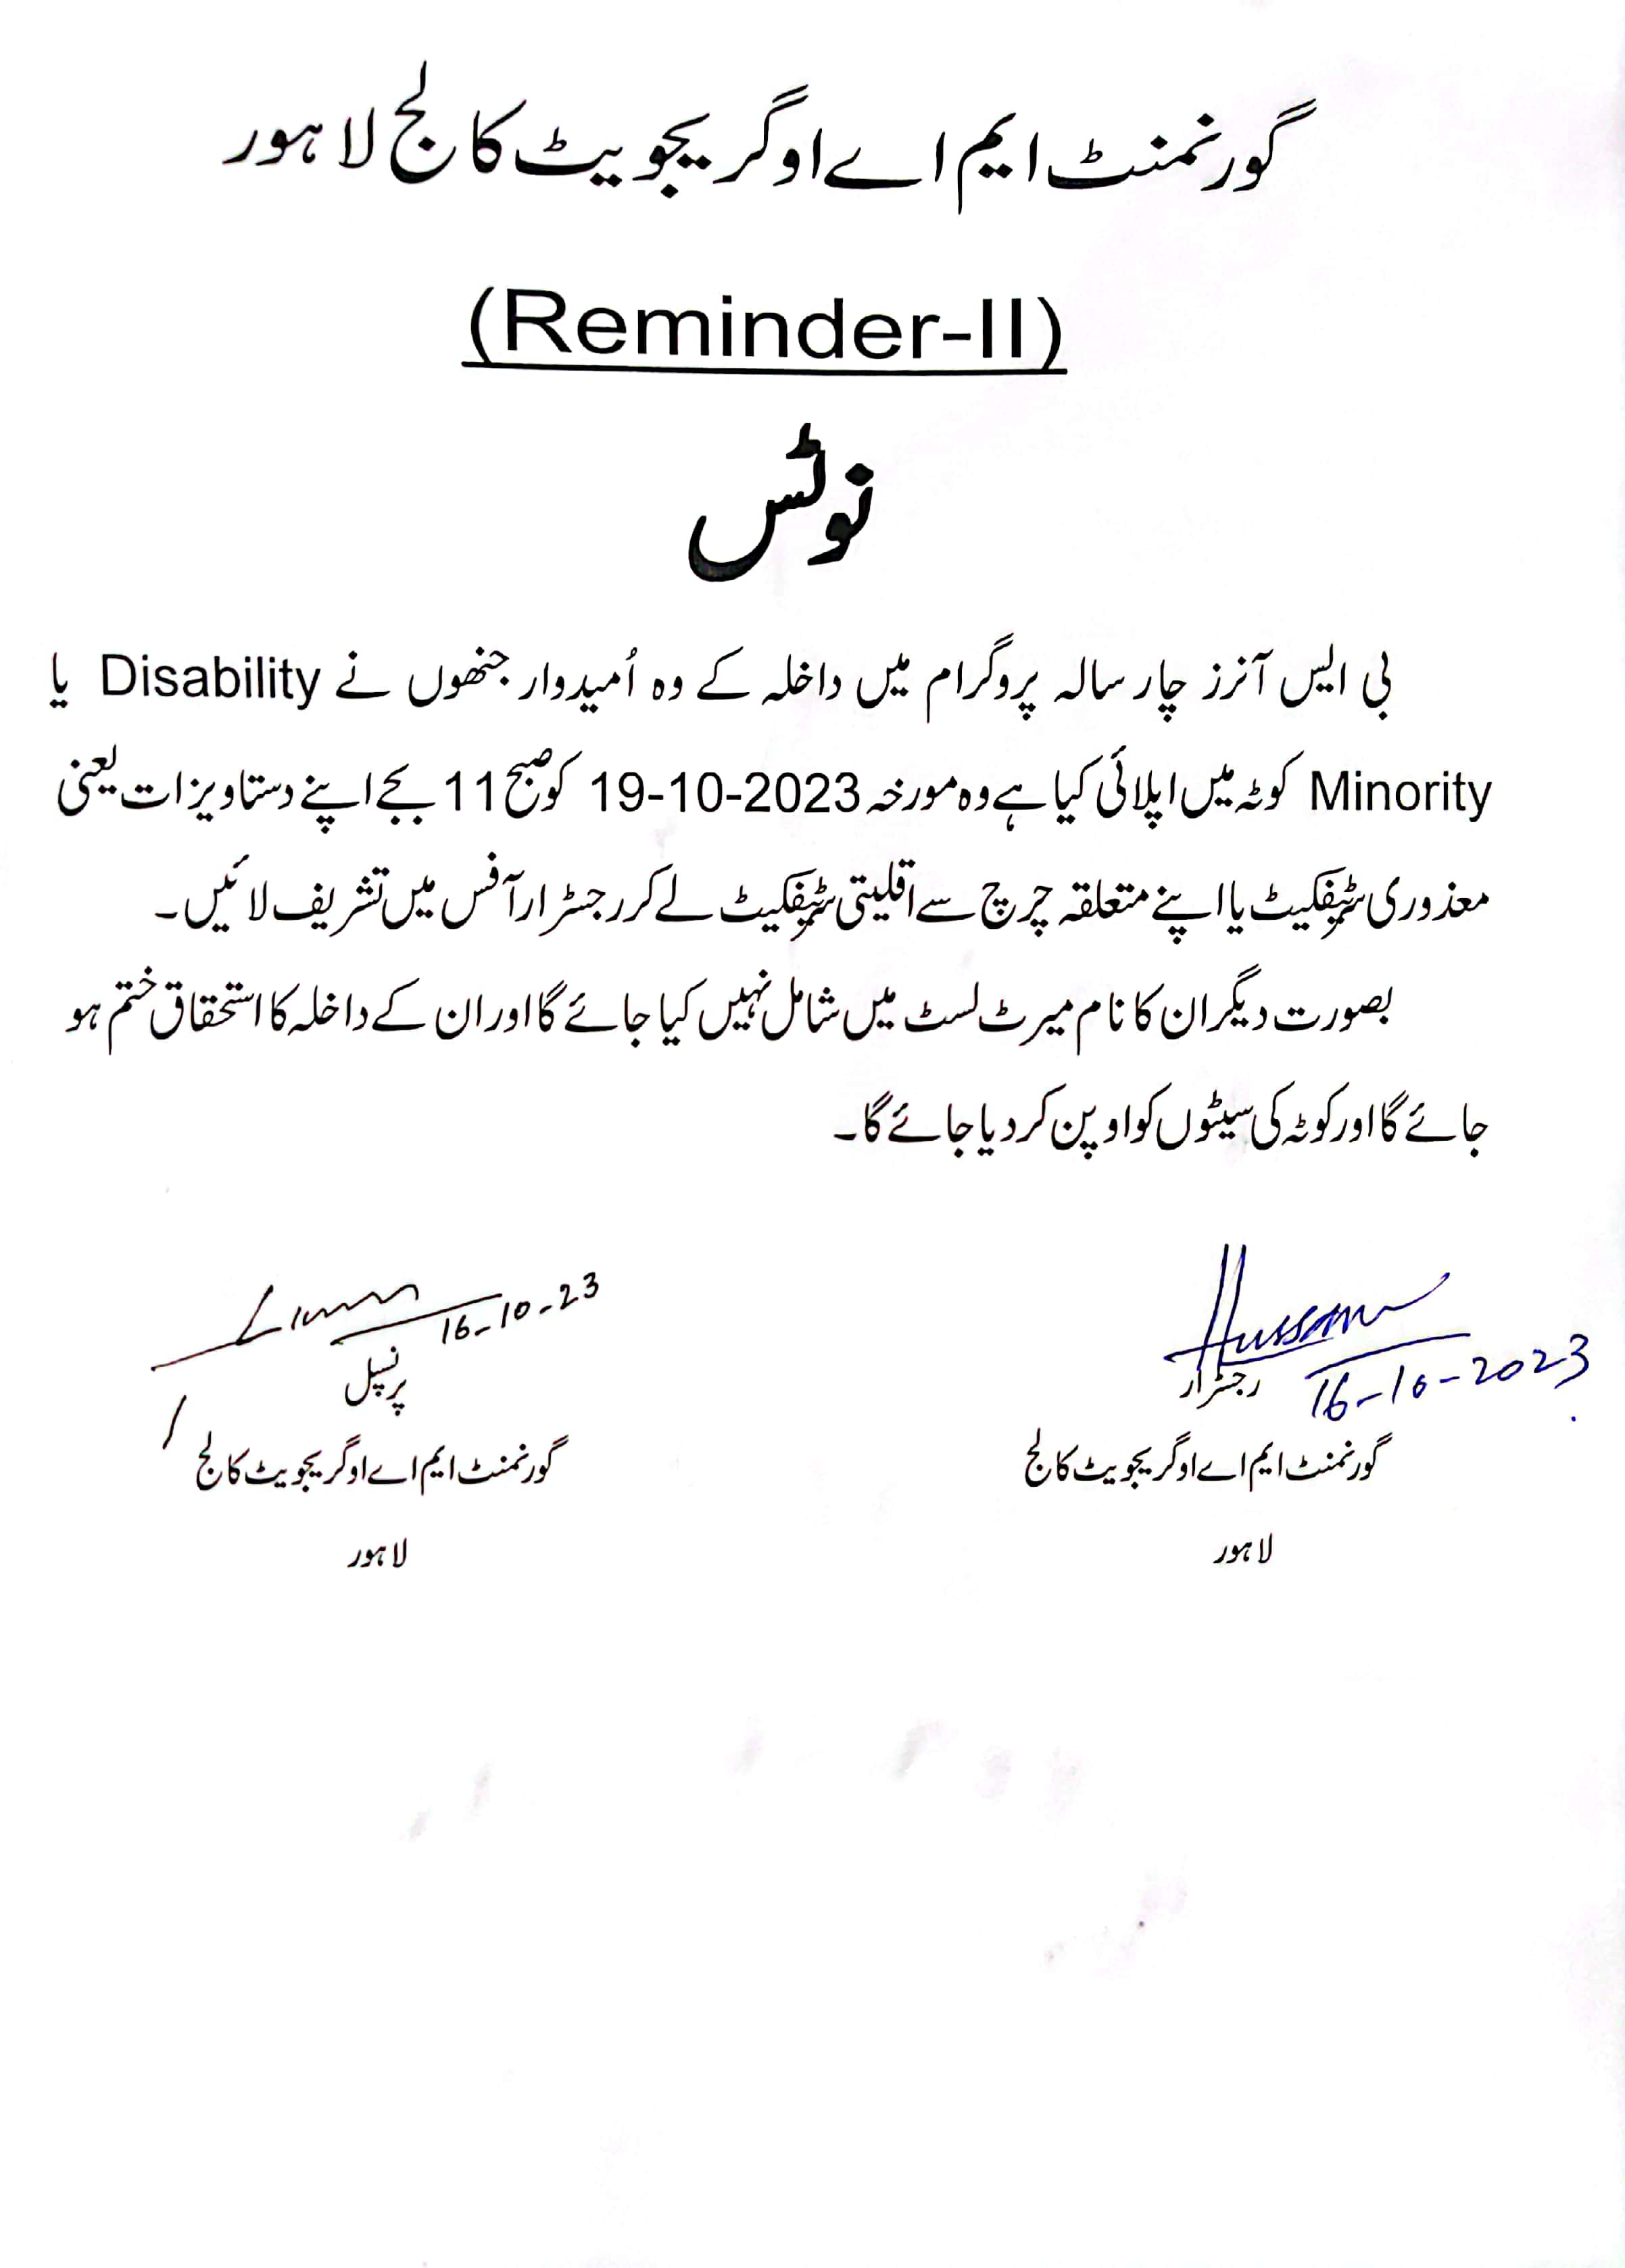 گورنمنٹ ایم اے او گریجویٹ کالج لاہور
(Reminder-II)
نوٹس
بی ایس آنرز چار سالہ پروگرام میں داخلہ کے وہ اُمیدوار جنھوں نے Disability یا
Minority کوٹہ میں اپلائی کیا ہے وہ مورخہ 19-10-2023 کو صبح 11 بجے اپنے دستاویزات یعنی
معذوری سرٹیفکیٹ یا اپنے متعلقہ چرچ سے اقلیتی سرٹیفکیٹ لے کر رجسٹرار آفس میں تشریف لائیں۔
بصورت دیگر ان کا نام میرٹ لسٹ میں شامل نہیں کیا جائے گا اور ان کے داخلہ کا استحقاق ختم ہو
جائے گا اور کوٹہ کی سیٹوں کو اوپن کر دیا جائے گا۔
Hussain
16-10-2023
رجسٹرار
گورنمنٹ ایم اے او گریجویٹ کالج
لاہور
16-10-23
پرنسپل
گورنمنٹ ایم اے او گریجویٹ کالج
لاہور